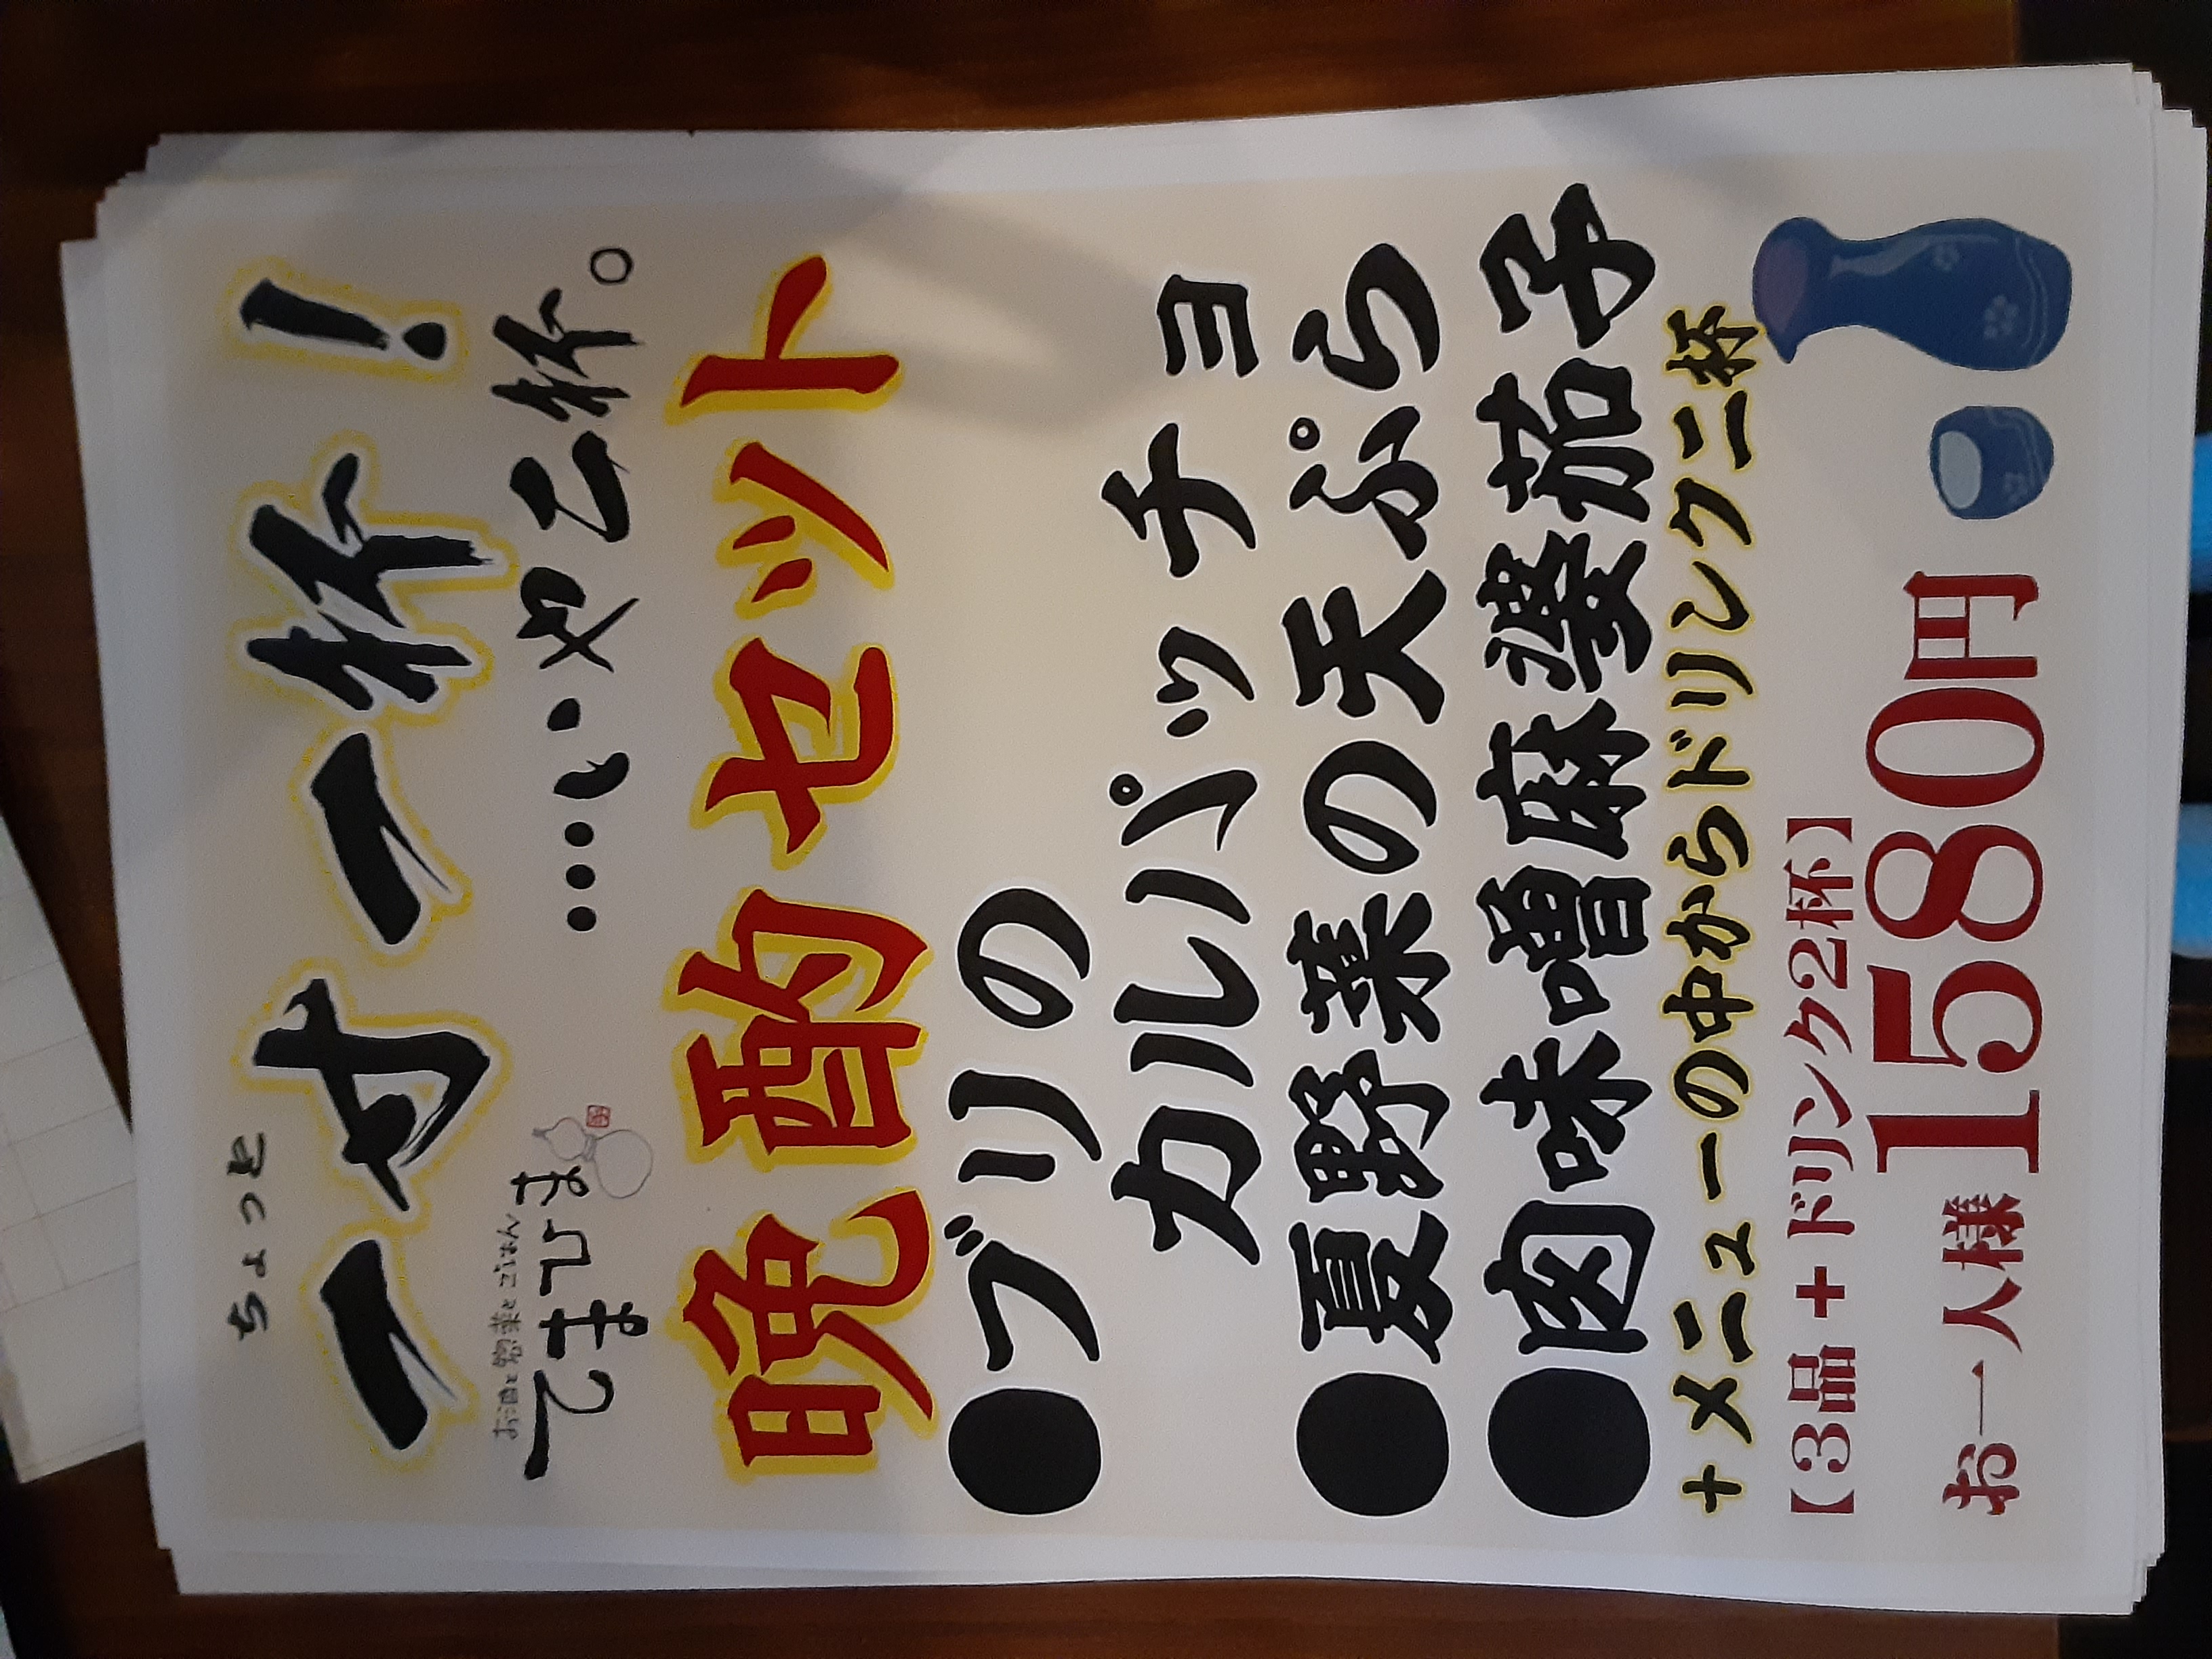 ちょっと
一寸一杯!
お酒と惣菜とごはん
てまひま
…いや乙杯。
晩酌セット
●ブリの
カルパッチョ
●夏野菜の天ぷら
●肉味噌麻婆茄子
+メニューの中からドリンク二杯
【3品+ドリンク2杯】
お一人様1580円